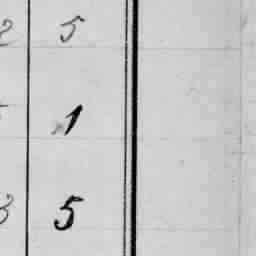 2 5
1
3 5